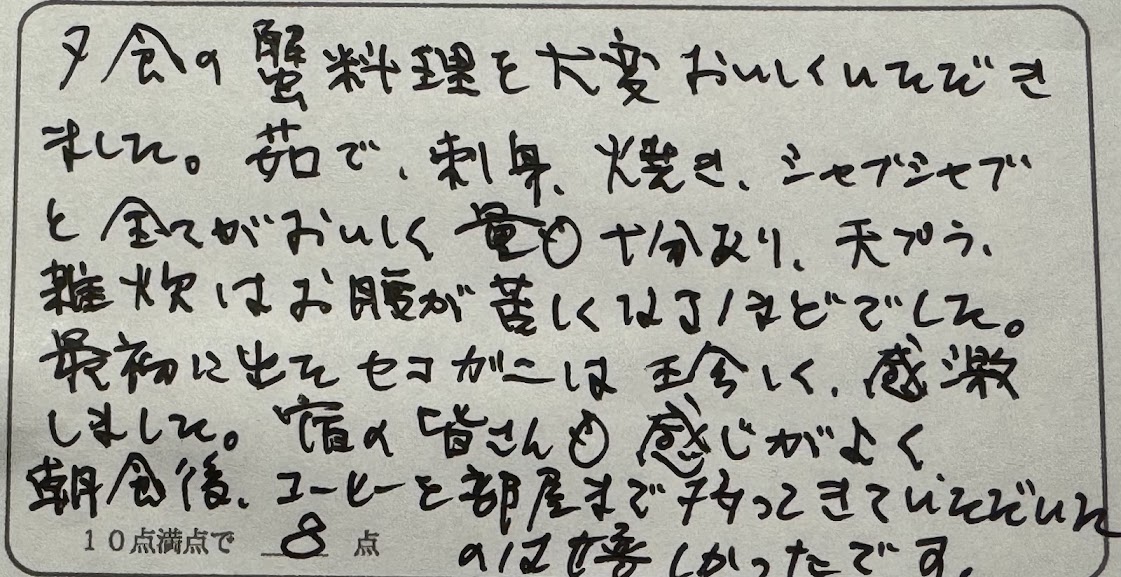 夕食の蟹料理を大変おいしくいただき
ました。茹で、刺身、焼き、シャブシャブ
と全てがおいしく量も十分あり、天プラ、
雑炊はお腹が苦しくなるほどでした。
最初に出たセコガニは珍しく、感激
しました。宿の皆さんも感じがよく
朝食後、コーヒーを部屋まで持ってきていただいた
のは嬉しかったです。
10点満点で 8 点